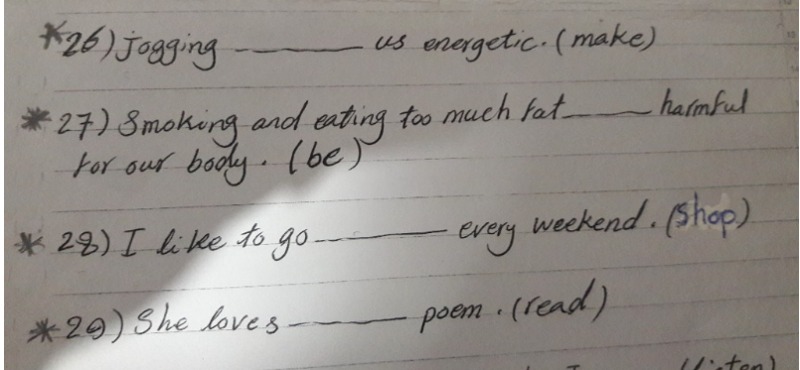 *26) Jogging ________ us energetic. (make)
*27) Smoking and eating too much fat ______ harmful
for our body. (be)
*28) I like to go ________ every weekend. (shop)
*29) She loves ________ poem. (read)
(listen)